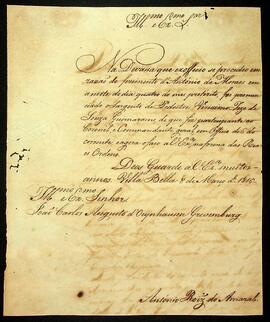 Illmo e Exmo Snr
Na Devaça que ex officio se procedeo em
razaõ do ferimento d'Antonio de Moraes em
a noite do dia quatro do mez preterito, foi pronun-
ciado o Sargento de Pedestres
Souza Guimaraens de que fiz participante ao
Coronel Commandante geral em Officio de 6 do
corrente e agora o faço a V. Exa. na forma das
Ordens.
Deos Guarde a V. Exa. muitos
annos. Villa Bella 8 de Março de 1810.
Illmo e Exmo Senhor
João Carlos Augusto d'Oynhausen Grevemburg
Antonio Roiz do Amaral